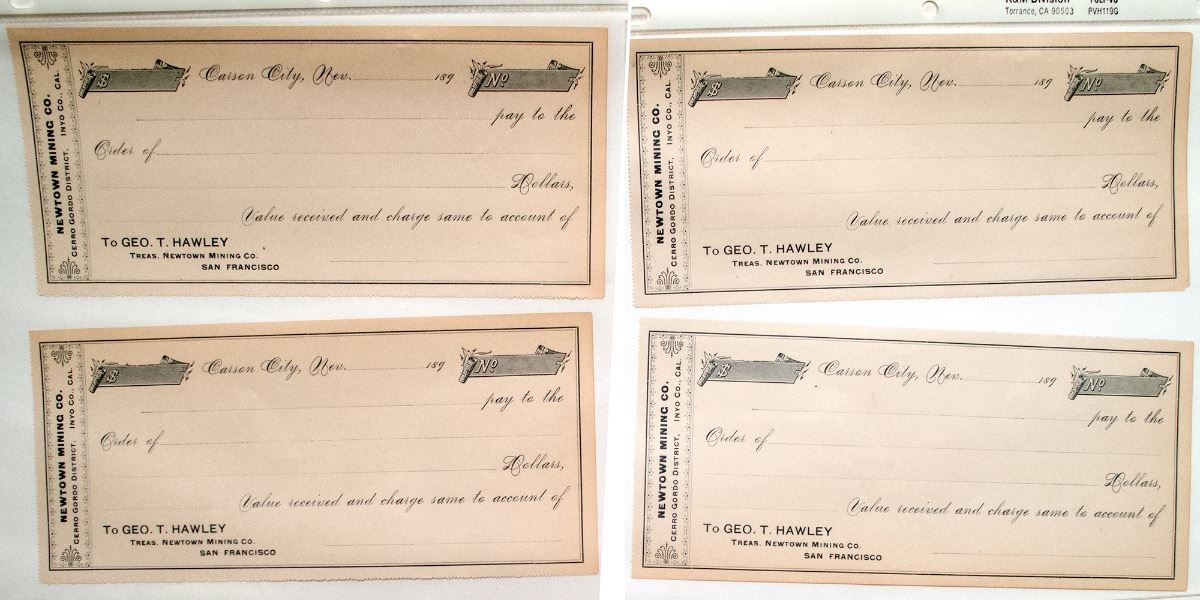 NEWTOWN MINING CO.
CERRO GORDO DISTRICT, INYO CO., CAL.
$ Carson City, Nev. 189 No
pay to the
Order of
Dollars,
Value received and charge same to account of
To GEO. T. HAWLEY
TREAS. NEWTOWN MINING CO.
SAN FRANCISCO
Torrance, CA 90503 PVH119G
NEWTOWN MINING CO.
CERRO GORDO DISTRICT, INYO CO., CAL.
$ Carson City, Nev. 189 No
pay to the
Order of
Dollars,
Value received and charge same to account of
To GEO. T. HAWLEY
TREAS. NEWTOWN MINING CO.
SAN FRANCISCO
NEWTOWN MINING CO.
CERRO GORDO DISTRICT, INYO CO., CAL.
$ Carson City, Nev. 189 No
pay to the
Order of
Dollars,
Value received and charge same to account of
To GEO. T. HAWLEY
TREAS. NEWTOWN MINING CO.
SAN FRANCISCO
NEWTOWN MINING CO.
CERRO GORDO DISTRICT, INYO CO., CAL.
$ Carson City, Nev. 189 No
pay to the
Order of
Dollars,
Value received and charge same to account of
To GEO. T. HAWLEY
TREAS. NEWTOWN MINING CO.
SAN FRANCISCO